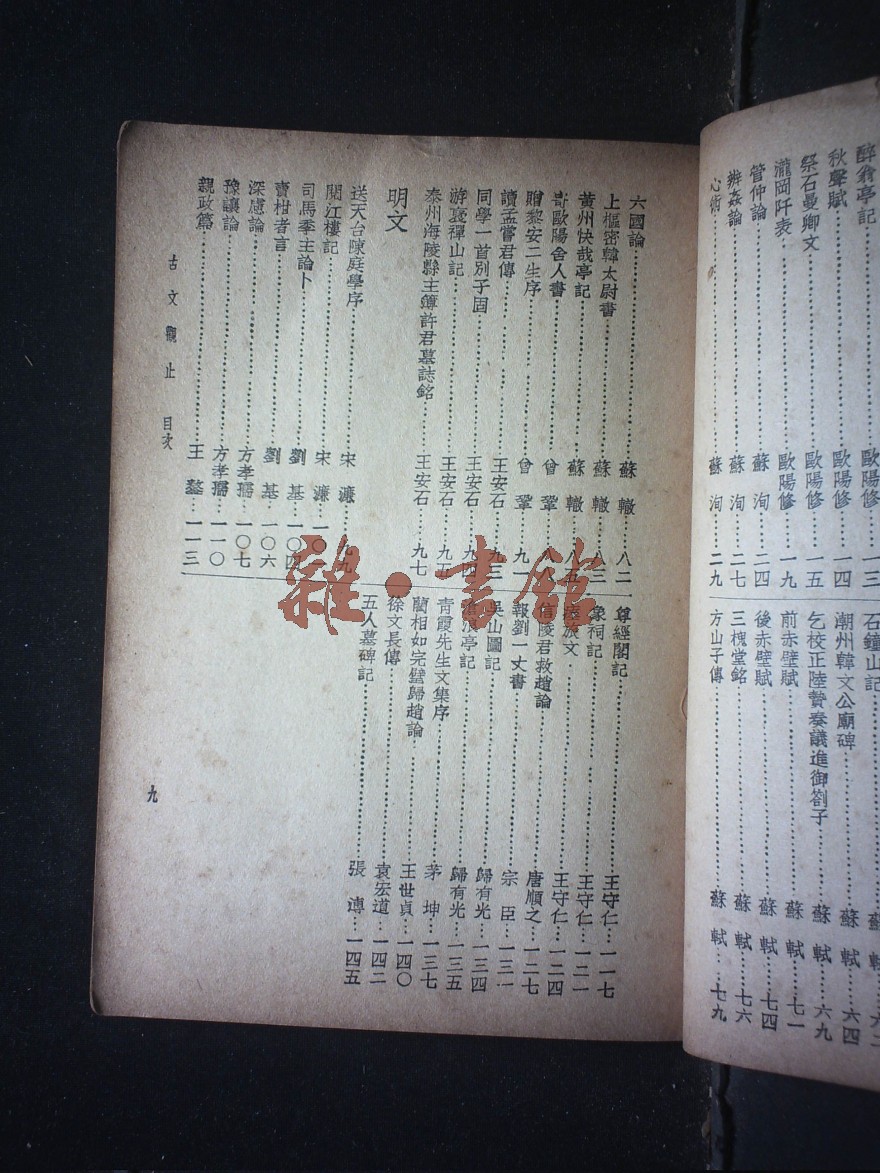 醉翁亭記………歐陽修…一三
秋聲賦………歐陽修…一四
祭石曼卿文………歐陽修…一五
瀧岡阡表………歐陽修…一九
管仲論………蘇洵…二四
辨姦論………蘇洵…二七
心術………蘇洵…二九
石鐘山記………蘇軾…六二
潮州韓文公廟碑………蘇軾…六四
乞校正陸贄奏議進御劄子………蘇軾…六九
前赤壁賦………蘇軾…七一
後赤壁賦………蘇軾…七四
三槐堂銘………蘇軾…七六
方山子傳………蘇軾…七九
六國論………蘇轍…八二
上樞密韓太尉書………蘇轍…八三
黃州快哉亭記………蘇轍…八五
寄歐陽舍人書………曾鞏…八八
贈黎安二生序………曾鞏…九一
讀孟嘗君傳………王安石…九三
同學一首別子固………王安石…九四
游褒禪山記………王安石…九五
泰州海陵縣主簿許君墓誌銘………王安石…九七
明文
送天台陳庭學序………宋濂…九九
閱江樓記………宋濂…一〇一
司馬季主論卜………劉基…一〇四
賣柑者言………劉基…一〇六
深慮論………方孝孺…一〇七
豫讓論………方孝孺…一一〇
親政篇………王鏊…一一三
尊經閣記………王守仁…一一七
象祠記………王守仁…一二一
瘞旅文………王守仁…一二四
信陵君救趙論………唐順之…一二七
報劉一丈書………宗臣…一三一
吳山圖記………歸有光…一三四
滄浪亭記………歸有光…一三五
青霞先生文集序………茅坤…一三七
藺相如完璧歸趙論………王世貞…一四〇
徐文長傳………袁宏道…一四二
五人墓碑記………張溥…一四五
古文觀止 目次
九
雜·書館